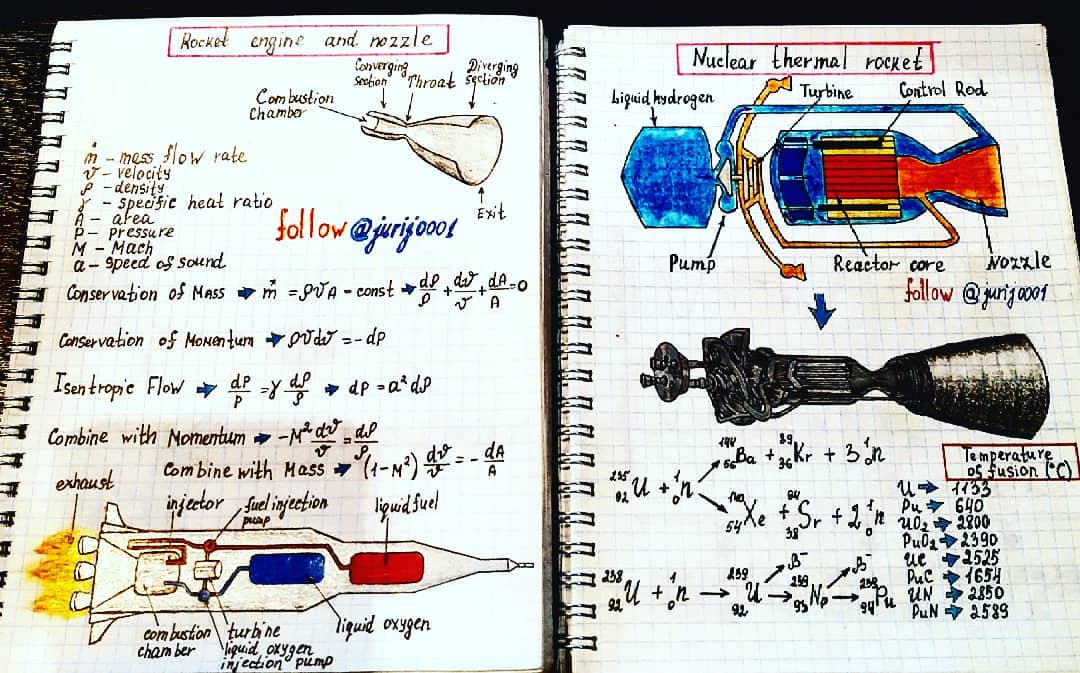 Rocket engine and nozzle
Converging section
Throat
Diverging section
Combustion chamber
Exit
ṁ - mass flow rate
v - velocity
ρ - density
γ - specific heat ratio
A - area
P - pressure
M - Mach
a - speed of sound
follow @jurij0001
Conservation of Mass → ṁ = ρVA - const → dρ/ρ + dv/v + dA/A = 0
Conservation of Momentum → ρVdv = - dP
Isentropic Flow → dP/P = γ dρ/ρ → dP = a² dρ
Combine with Momentum → -M² dv/v = dρ/ρ
Combine with Mass → (1-M²) dv/v = - dA/A
exhaust
injector
fuel injection pump
liquid fuel
combustion chamber
turbine
liquid oxygen injection pump
liquid oxygen
Nuclear thermal rocket
Liquid hydrogen
Turbine
Control Rod
Pump
Reactor core
Nozzle
follow @jurij0001
²³⁵₉₂U + ¹₀n
₅₆Ba + ⁸⁹₃₆Kr + 3 ¹₀n
₅₄Xe + ⁹⁴₃₈Sr + 2 ¹₀n
²³⁸₉₂U + ¹₀n → ²³⁹₉₂U → ²³⁹₉₃Np → ²³⁹₉₄Pu
β⁻
β⁻
Temperature of fusion (°C)
U → 1133
Pu → 640
UO₂ → 2800
PuO₂ → 2390
UC → 2525
PuC → 1654
UN → 2850
PuN → 2589